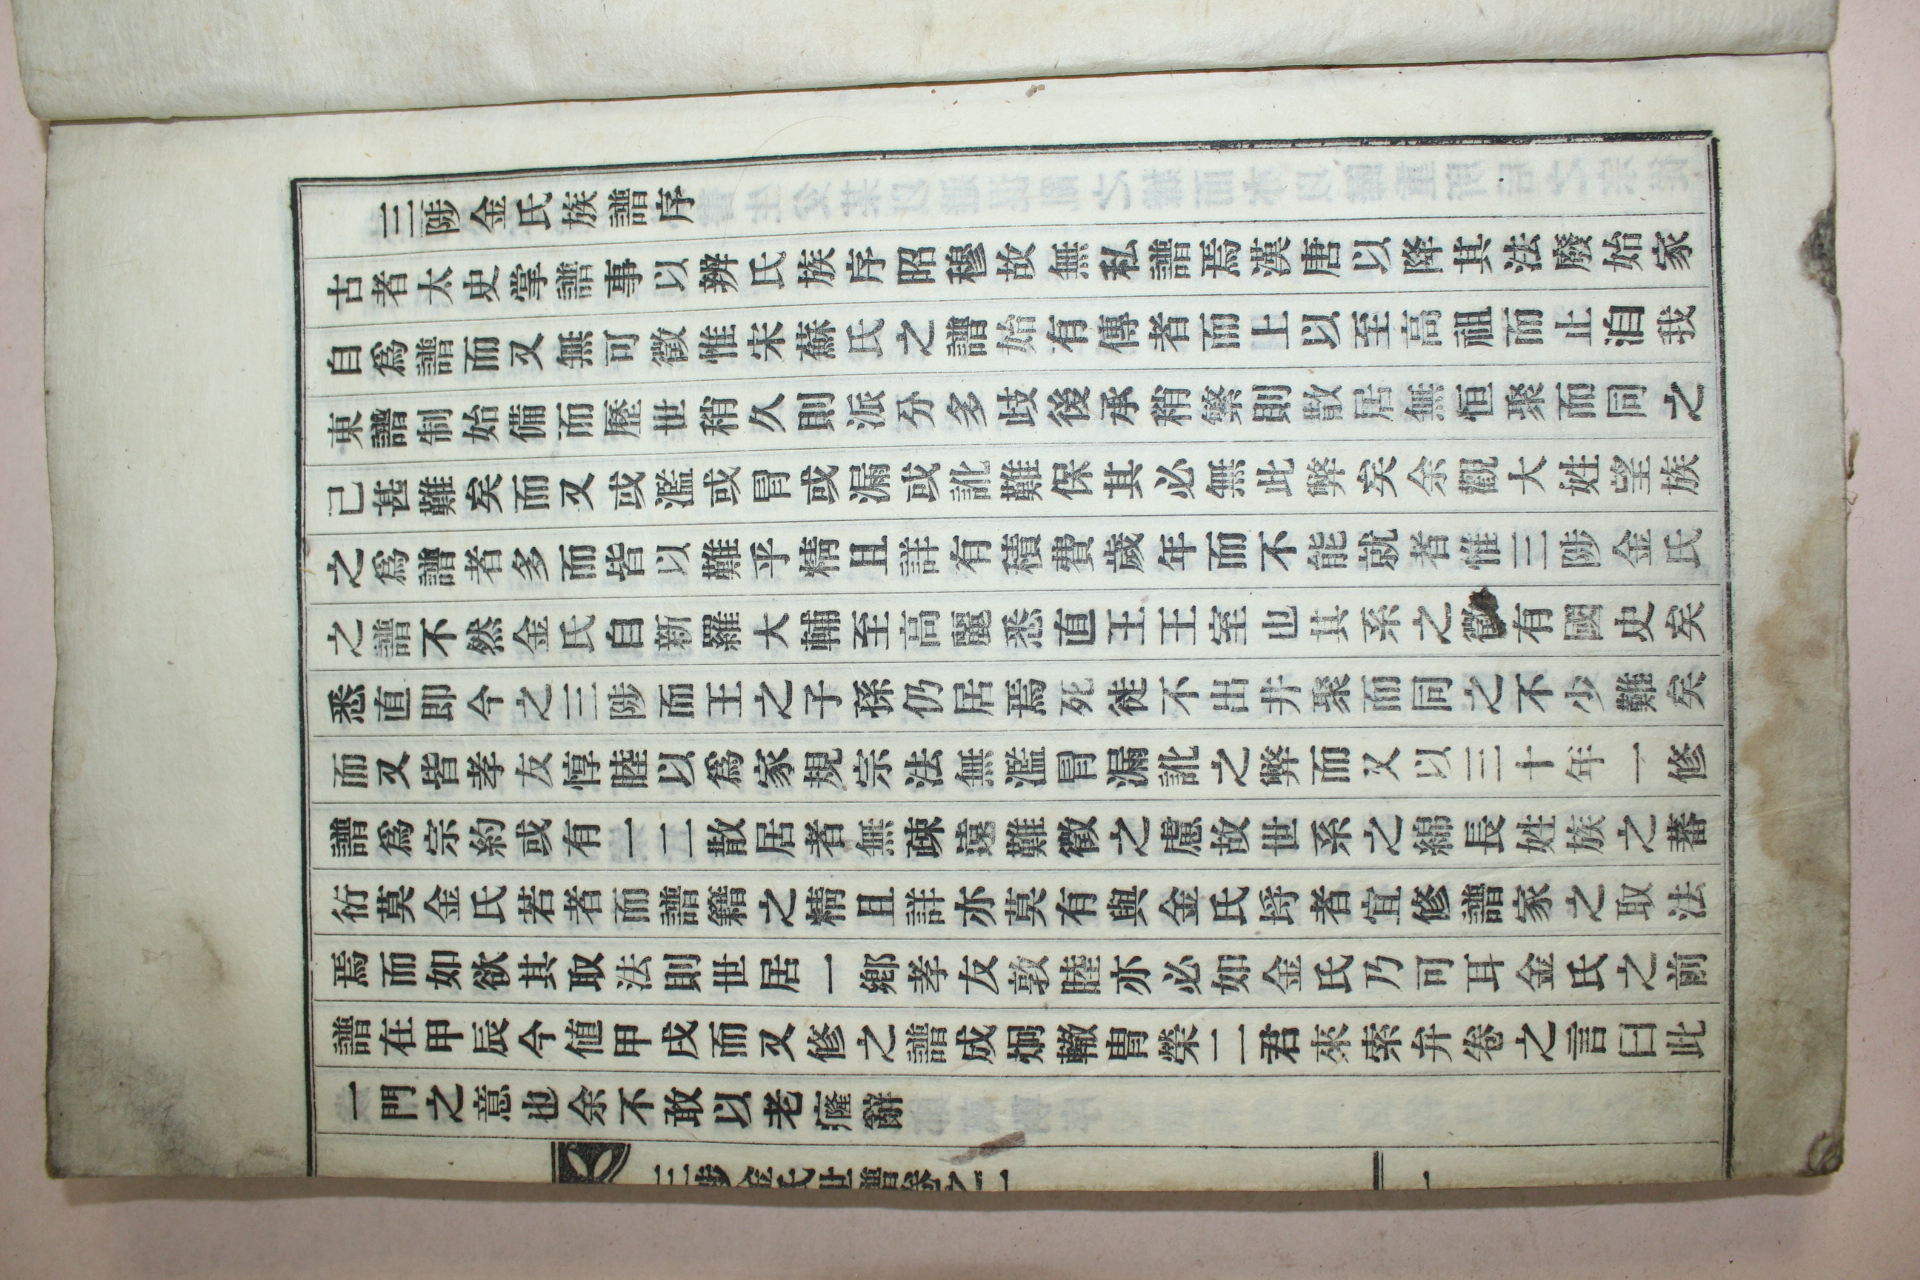 三陟金氏族譜序
古者太史掌譜事以辨氏族序昭穆故無私譜焉漢唐以降其法廢始家
自爲譜而又無可徵惟宋蘇氏之譜始有傳者而上以至高祖而止洎我
東譜制始備而歷世稍久則派分多歧後承稍繁則散居無恒聚而同之
已甚難矣而又或濫或冒或漏或訛難保其必無此弊矣余觀大姓望族
之爲譜者多而皆以難乎精且詳有積費歲年而不能就者惟三陟金氏
之譜不然金氏自新羅大輔至高麗悉直王王室也其系之徵有國史矣
悉直即今之三陟而王之子孫仍居焉死徙不出井聚而同之不少難矣
而又皆孝友惇睦以爲家規宗法無濫冒漏訛之弊而又以三十年一修
譜爲宗約或有一二散居者無疎遠難徵之慮故世系之綿長姓族之蕃
衍莫金氏若者而譜籍之精且詳亦莫有與金氏埒者宜修譜家之取法
焉而如欲其取法則世居一鄕孝友敦睦亦必如金氏乃可耳金氏之前
譜在甲辰今値甲戌而又修之譜成炯轍冑榮二君來索弁卷之言曰此
一門之意也余不敢以老癃辭
三陟金氏世譜卷之一
一